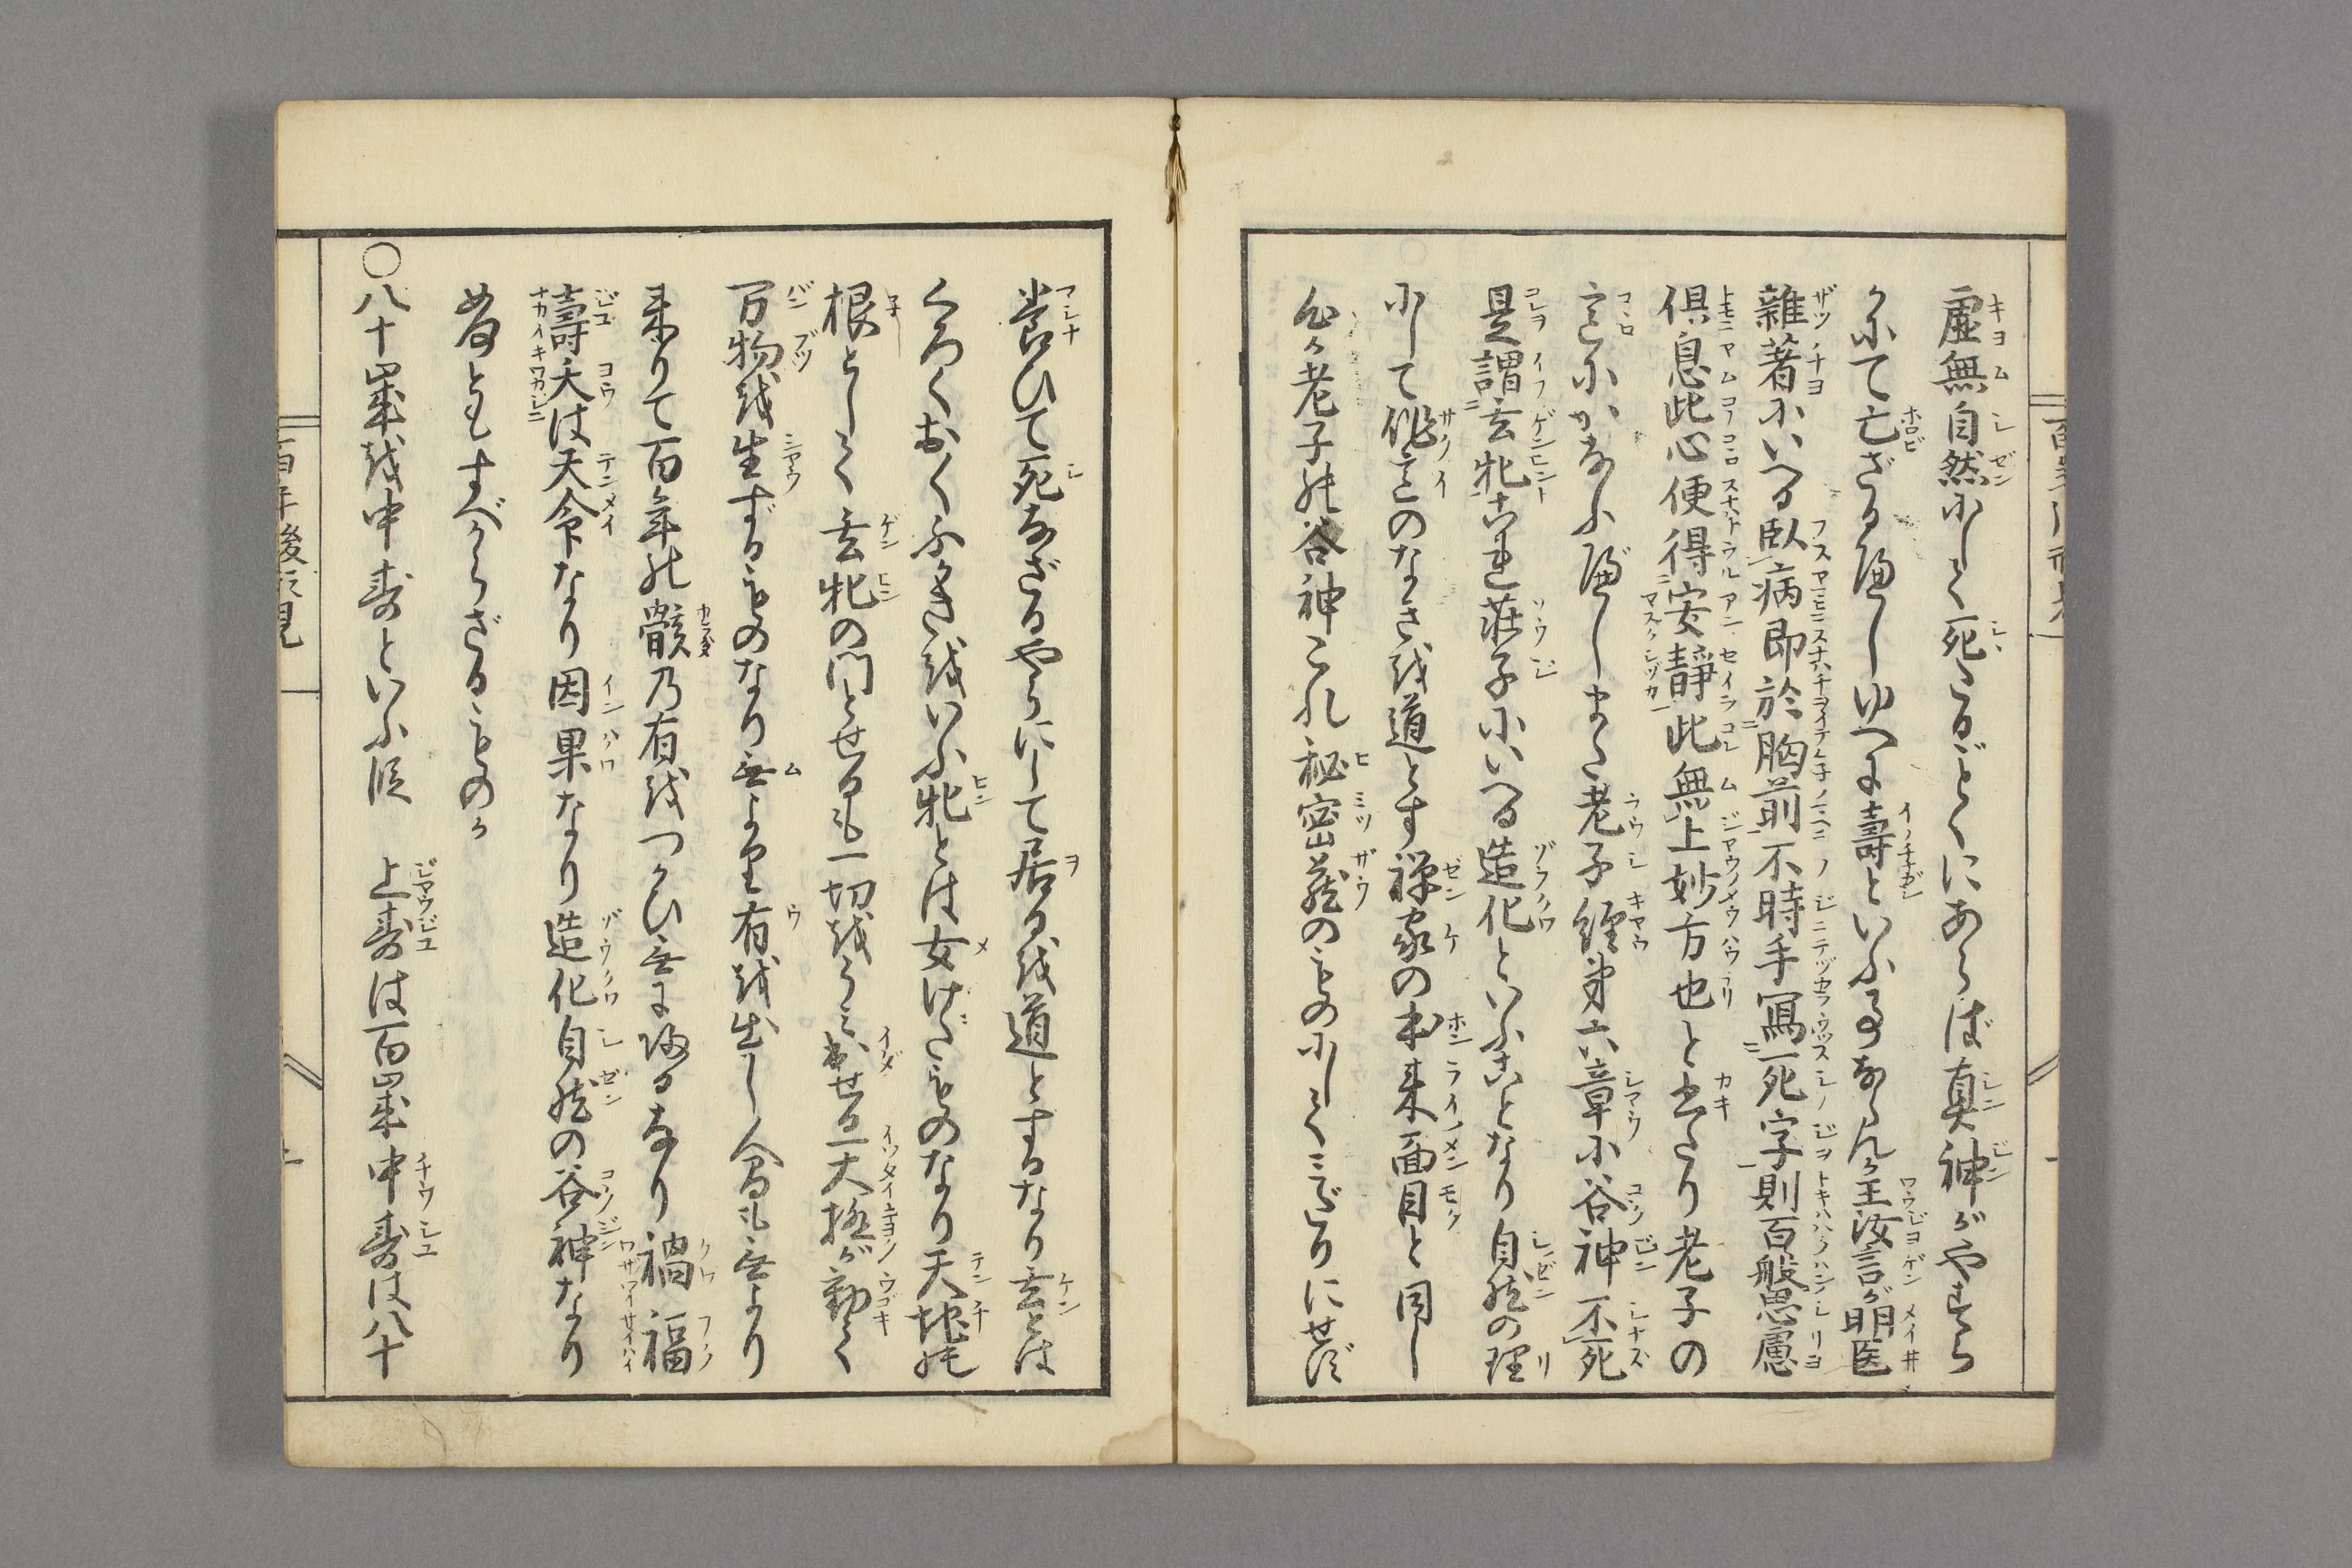 虚無自然にして死たるごとくにあらば真神がやすら
かにて亡ざるべしゆへに壽といふ事あらんか王汝言が明医
雜著にいへる臥病即於胸前不時手寫死字則百般思慮
倶息此心便得安靜此無上妙方也と書たり老子の
言にかなふべしまた老子經第六章に谷神不死
是謂玄牝これ荘子にいへる造化といふことなり自然の理
にして作意のなきを道とす禅家の本来面目と同し
老子の谷神これ秘密蔵のものにしてみだりにせば
養ひて死なざるやうにして居るを道とするなり玄とは
くろくおくふかきを以いふ牝とは女けたものなり天地の
根として玄牝の門とせるも一切をうみ出せる一大極が動て
万物を生ずるものなり無より有を出し人間も無より
来りて百年の骸乃有をつかひ無に帰るなり禍福
壽夭は天命なり因果なり造化自然の谷神なり
ともすべからざるものか
○八十歳を中寿といふ注 上寿は百歳中寿は八十
百年後形見